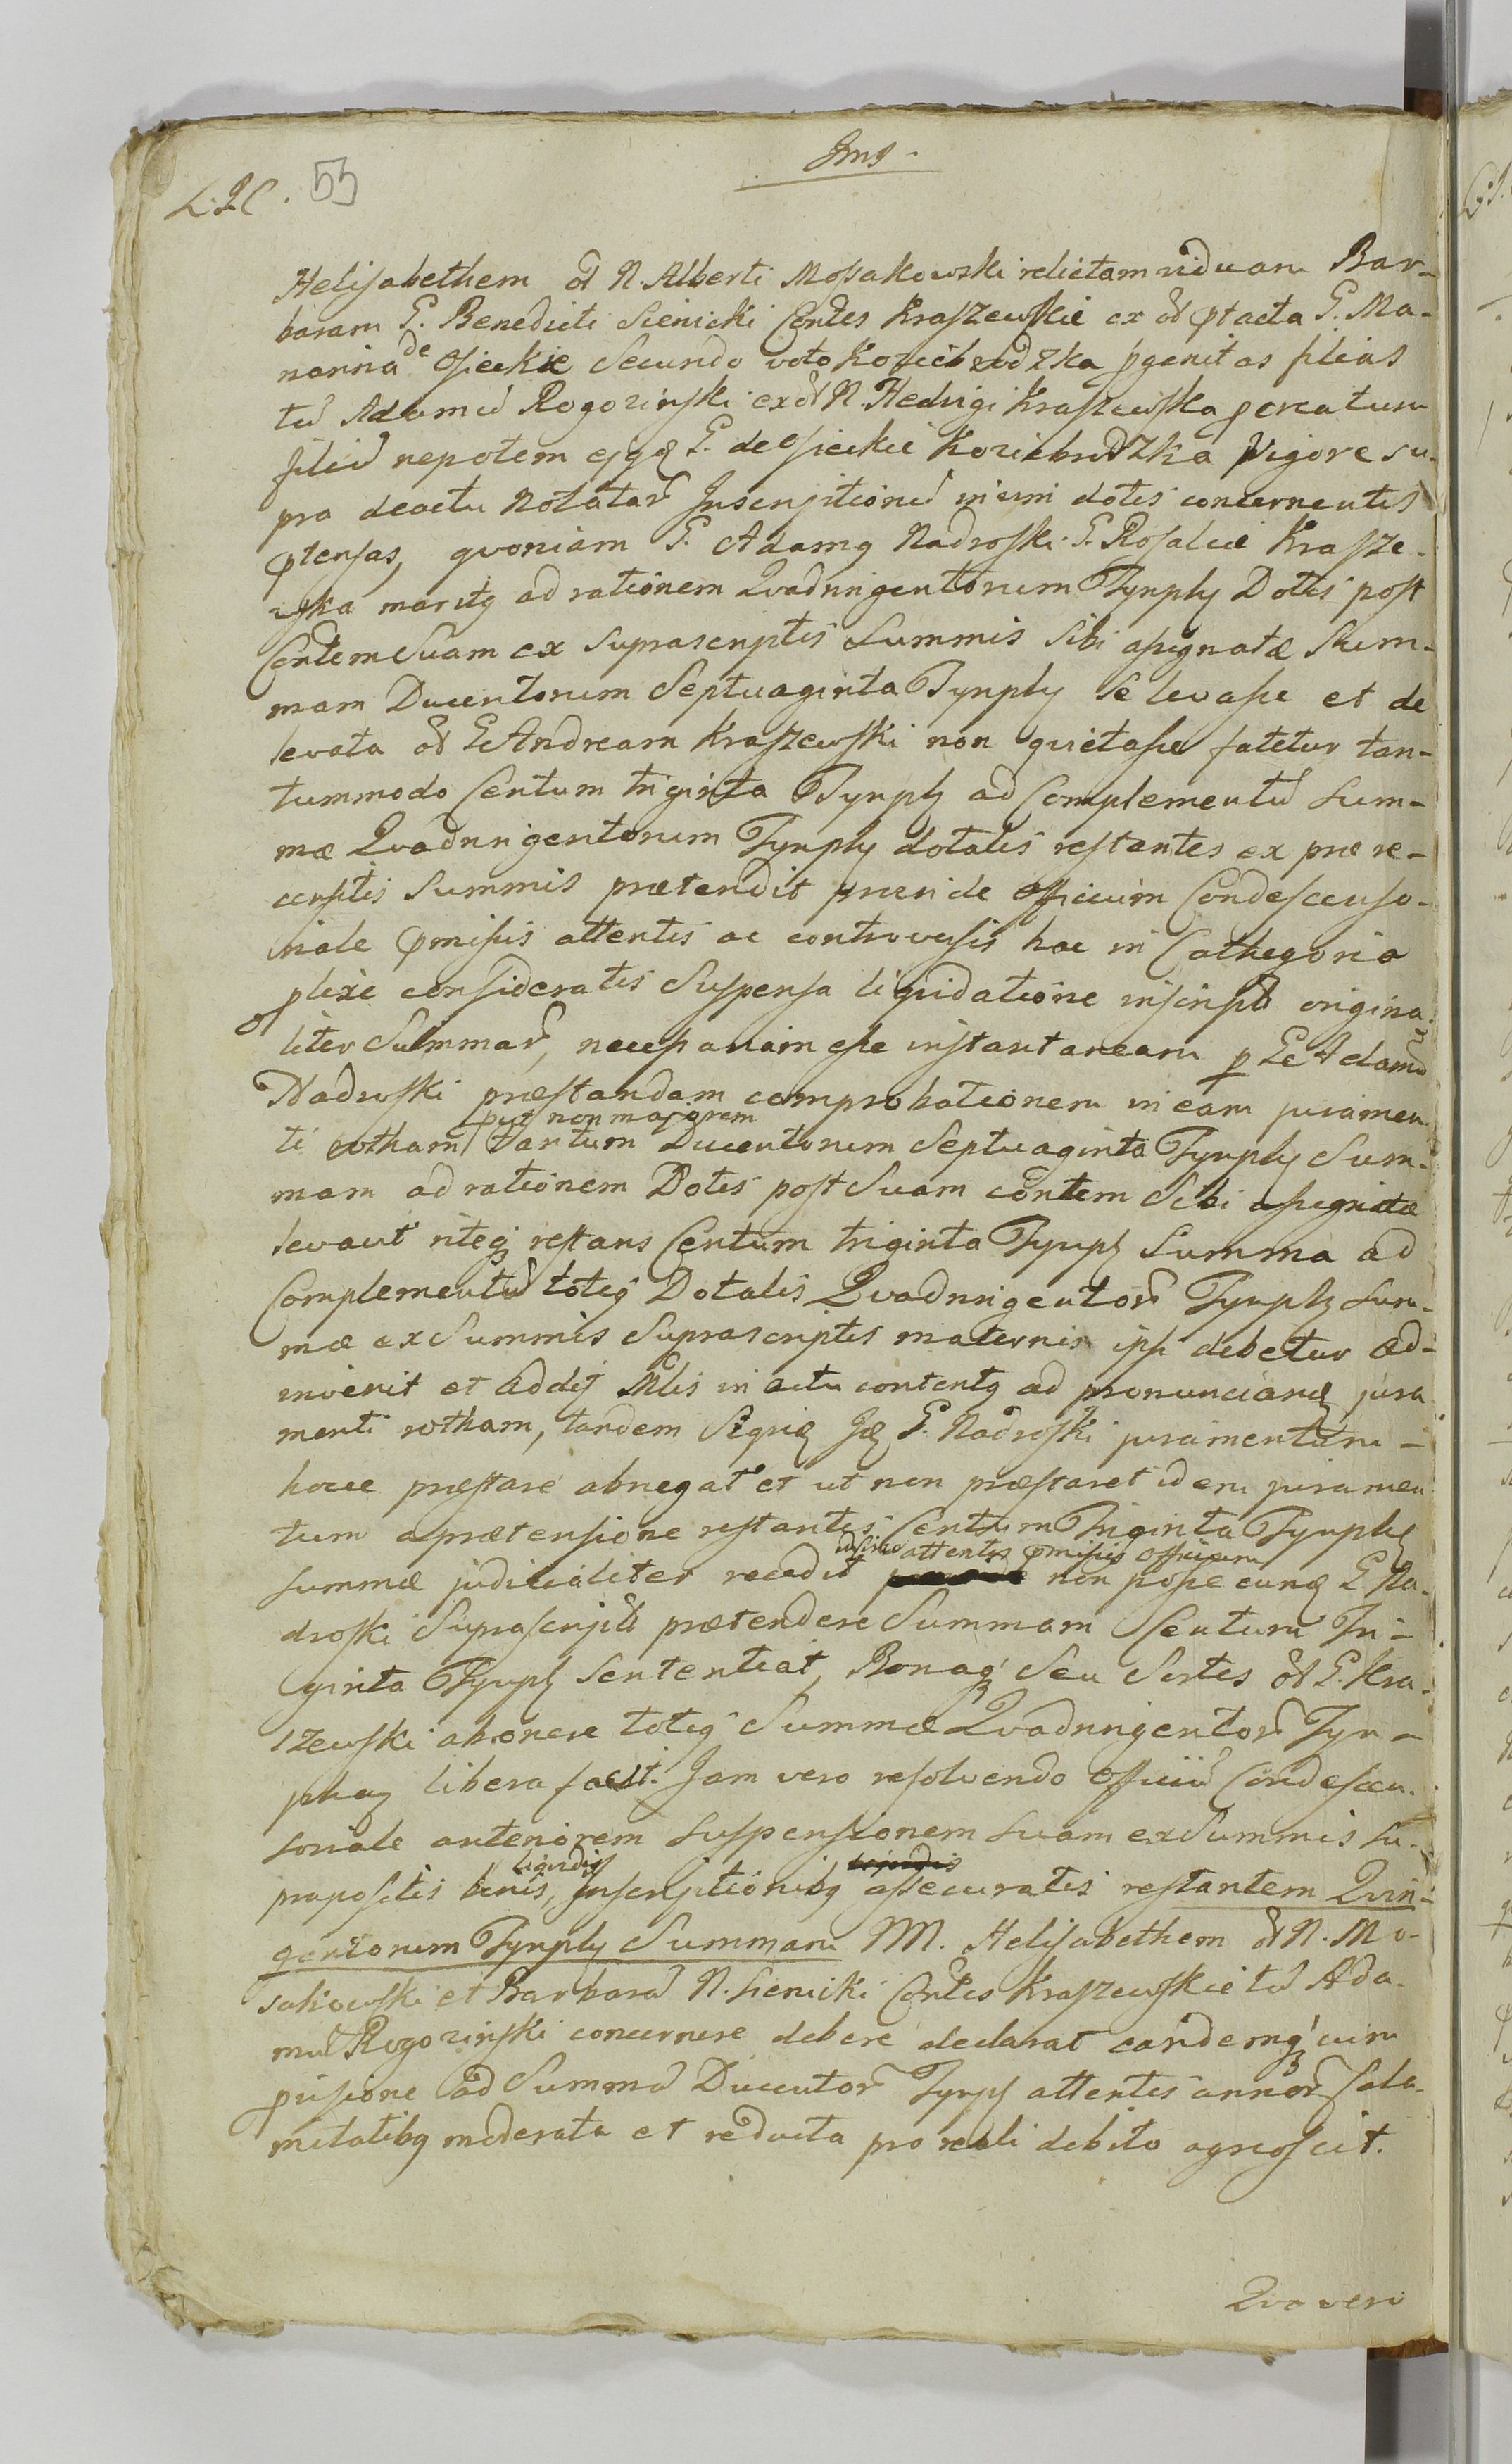 Ims
53
Helisabethem od N. Alberti Mosakowski relictam viduam Bar-
baram G. Benedicti Sienicki Contes Kraszewskie ex od G. Ma-
rianna de Osieckie Secundo voto Koziebrodzka genitas filias
tu Adamu Rogozinski ex od N. Hedvigi Kraszewska procreatum
filiu nepotem ejq G. de Osieckie Koziebrodzka Vigore su-
pra deactu Notatar Inscriptionu dotis concernentes
ptensas, quoniam G. Adamq Nadroski G. Rosalia Krasze-
wska maritq ad rationem Quadringentorum Tynph Dotis post
Contem Suam ex Suprascriptis Summis Sibi assignatæ Sum-
mam Ducentorum Septuaginta Tynph se levasse et de
levata od G Andream Kraszewski non quietasse fatetur tan-
tummodo Centum triginta Tynph ad Complementu Sum-
mæ Quadringentorum Tynph dotalis restantes ex præ re-
censitis Summis prætendit proinde Officium Condescenso-
riale pmissis attentis ac controversis hac in Cathegoria
plixe consideratis Suspensa liquidatione origina-
liter Summar, necessariam esse instantaneam p G Adamu
Nadroski præstandam comprobationem in eam juramen
quod non majorem
ti rotham tantum Ducentorum Septuaginta Tynph Sum-
mam ad rationem Dotis post Suam contem Sibi assignatæ
levavit restans Centum triginta Tynph Summa ad
Complementu totiq Dotalis Quadringentor Tynph Sum-
mæ ex Summis Suprascriptis maternis ipsi debetur ad-
invenit et addit in actu contentq ad pronuncianq jura
menti rotham, tandem G. Nadroski juramentum -
hocce præstare abnegat et ut non præstaret idem juramen
tum a prætensione restantis Centum Triginta Tynph
idcirco attentis pmissis Officium
Summæ judicialiter recedit non posse G Na-
droski Suprascript prætendere Summam Centum Tri-
ginta Tynph Sententiat, Bonaq Seu Sortes od G. Kra-
szewski ab onere totiq Summæ Quadringentor Tyn-
phaz libera facit. Jam vero resolvendo Officiu Condescen-
soriale anteriorem Suspensionem suam ex Summis su-
liquidis
prapositis binis, Inscriptionibq assecuratis restantem Quin-
gentorum Tynph Summam MM. Helisabethem od N. Mo-
sakowski et Barbara N. Sienicki Contes Kraszewskie tu Ada-
mu Rogozinski concernere debere declarat eandemq cum
pvisione ad Summa Ducentor Tynph attentis annor Cala-
mitatibq moderata et reducta pro reali debito agnoscit.
Quo vero